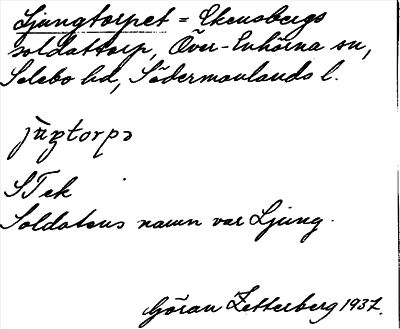 Ljungtorpet = Ekensbergs
soldattorp, Över-Enhörna sn,
Selebo hd, Södermanlands l.
STek
Soldatens namn var Ljung.
Göran Zetterberg 1937.